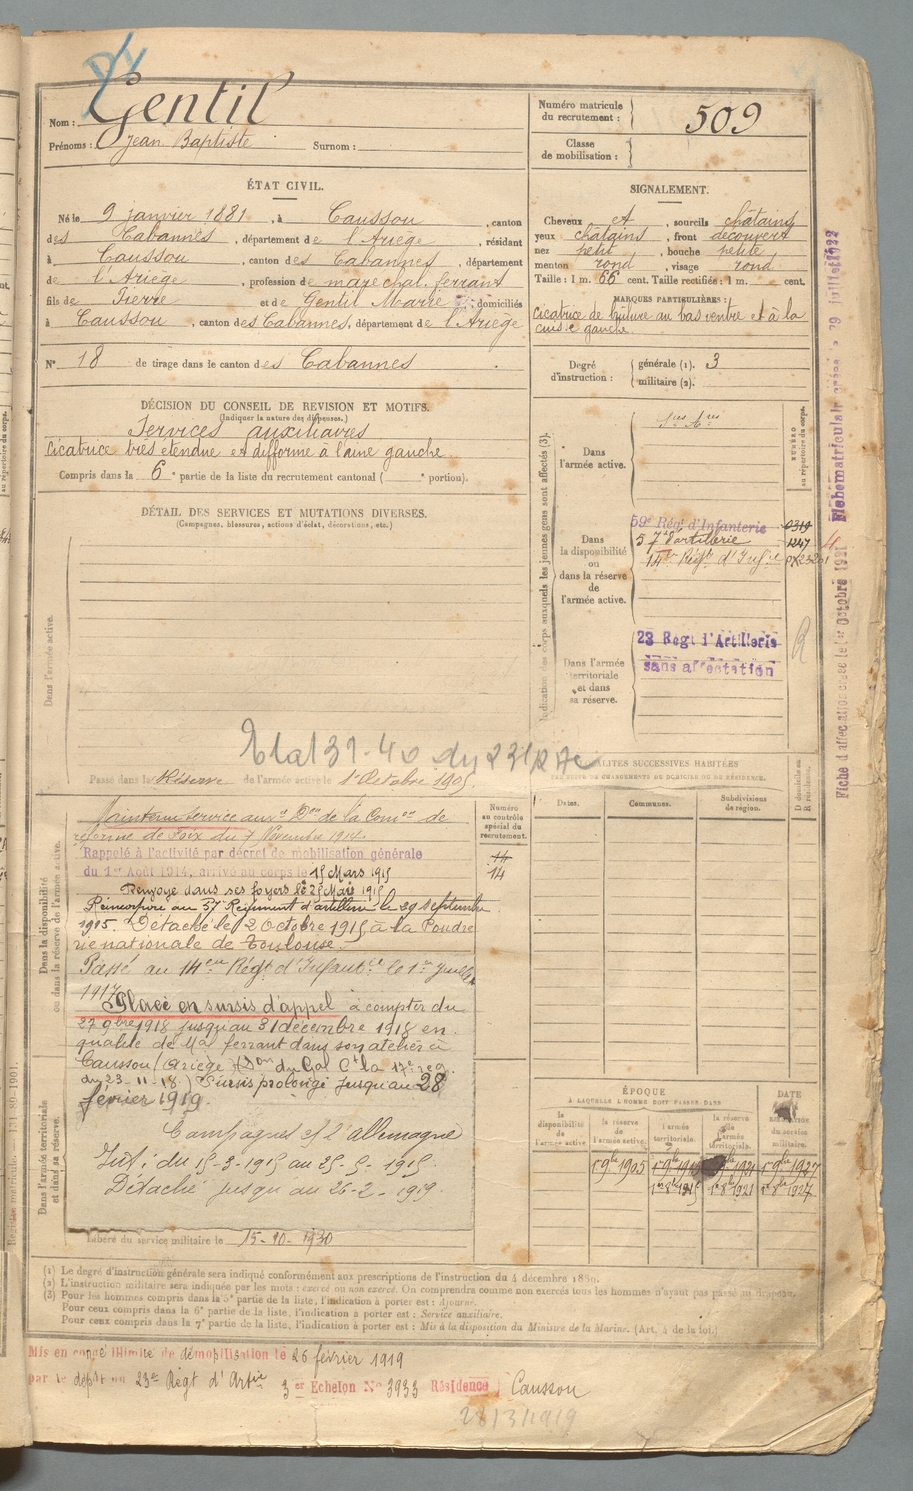 Gentil
Nom :
Prénoms : Jean Baptiste Surnom :
Numéro matricule du recrutement : 509
Classe de mobilisation :
ÉTAT CIVIL.
Né le 9 janvier 1881, à Caussou, canton
des Cabannes, département de l'Ariège, résidant
à Caussou, canton des Cabannes, département
de l'Ariège, profession de maréchal ferrant
fils de Pierre et de Gentil Marie, domiciliés
à Caussou, canton des Cabannes, département de l'Ariège
N° 18 de tirage dans le canton des Cabannes.
SIGNALEMENT.
Cheveux et, sourcils châtains
yeux châtains, front découvert
nez petit, bouche petite
menton rond, visage rond
Taille : 1 m. 66 cent. Taille rectifiée : 1 m. cent.
MARQUES PARTICULIÈRES :
cicatrice de brûlure au bas ventre et à la
cuisse gauche.
Degré d'instruction : générale (1). 3
militaire (2).
DÉCISION DU CONSEIL DE REVISION ET MOTIFS.
(Indiquer la nature des dispenses.)
Services auxiliaires
cicatrice très étendue et difforme à l'aine gauche
Compris dans la 6e partie de la liste du recrutement cantonal ( e portion).
DÉTAIL DES SERVICES ET MUTATIONS DIVERSES.
(Campagnes, blessures, actions d'éclat, décorations, etc.)
Dans l'armée active.
Indication des corps auxquels les jeunes gens sont affectés (3).
NUMÉRO au répertoire du corps.
Dans l'armée active.
Dans la disponibilité ou dans la réserve de l'armée active.
59e Régt d'Infanterie 0319
57e d'artillerie 1247
14e Régt d'Infie
Dans l'armée territoriale et dans sa réserve.
23 Regt d'Artillerie
sans affectation
R
Fiche d'affectation créée le 1er Octobre 1921
Passé dans la Réserve de l'armée active le 1er Octobre 1905
LOCALITÉS SUCCESSIVES HABITÉES
PAR SUITE DE CHANGEMENTS DE DOMICILE OU DE RÉSIDENCE.
Dates. Communes. Subdivisions de région.
D domicile ou R résidence.
Numéro au contrôle spécial du recrutement.
14
14
Dans la disponibilité ou dans la réserve de l'armée active.
Maintenu service auxre Don de la Comon de
réforme de Foix du 7 Novembre 1914.
Rappelé à l'activité par décret de mobilisation générale
du 1er Août 1914, arrivé au corps le 15 Mars 1915
Renvoyé dans ses foyers le 25 Mai 1915
Réincorporé au 57e Régiment d'artillerie le 29 septembre
1915. Détaché le 2 Octobre 1915 à la Poudre
rie nationale de Toulouse.
Passé au 14eme Régt d'Infantie le 1er Juillet
1917
Placé en sursis d'appel à compter du
27 9bre 1918 jusqu'au 31 décembre 1918 en
qualité de Mal ferrant dans son atelier à
Caussou (Ariège) (Don du Gal Ct la 17e rég.
du 23-11-18) Sursis prolongé jusqu'au 28
février 1919.
Campagnes c/ l'Allemagne
Int : du 15-3-1915 au 25-5-1915
Détaché jusqu'au 26-2-1919.
Dans l'armée territoriale et dans sa réserve.
Libéré du service militaire le 15-10-1930
ÉPOQUE
À LAQUELLE L'HOMME DOIT PASSER DANS
la disponibilité de l'armée active. la réserve de l'armée active. l'armée territoriale. la réserve de l'armée territoriale.
DATE de la LIBÉRATION du service militaire.
1er 9bre 1905
1er 8bre 1915 1er 8bre 1921 1er 8bre 1927
(1) Le degré d'instruction générale sera indiqué conformément aux prescriptions de l'instruction du 4 décembre 1889.
(2) L'instruction militaire sera indiquée par les mots : exercé ou non exercé. On comprendra comme non exercés tous les hommes n'ayant pas passé ni disposit.
(3) Pour les hommes compris dans la 5e partie de la liste, l'indication à porter est : Ajourné.
Pour ceux compris dans la 6e partie de la liste, l'indication à porter est : Service auxiliaire.
Pour ceux compris dans la 7e partie de la liste, l'indication à porter est : Mis à la disposition du Ministre de la Marine. (Art. 4 de la loi.)
Mis en congé illimité de démobilisation le 26 février 1919
par le dépôt du 23e Régt d'Artie 3er Echelon N° 3933 Résidence Caussou
28/3/1919